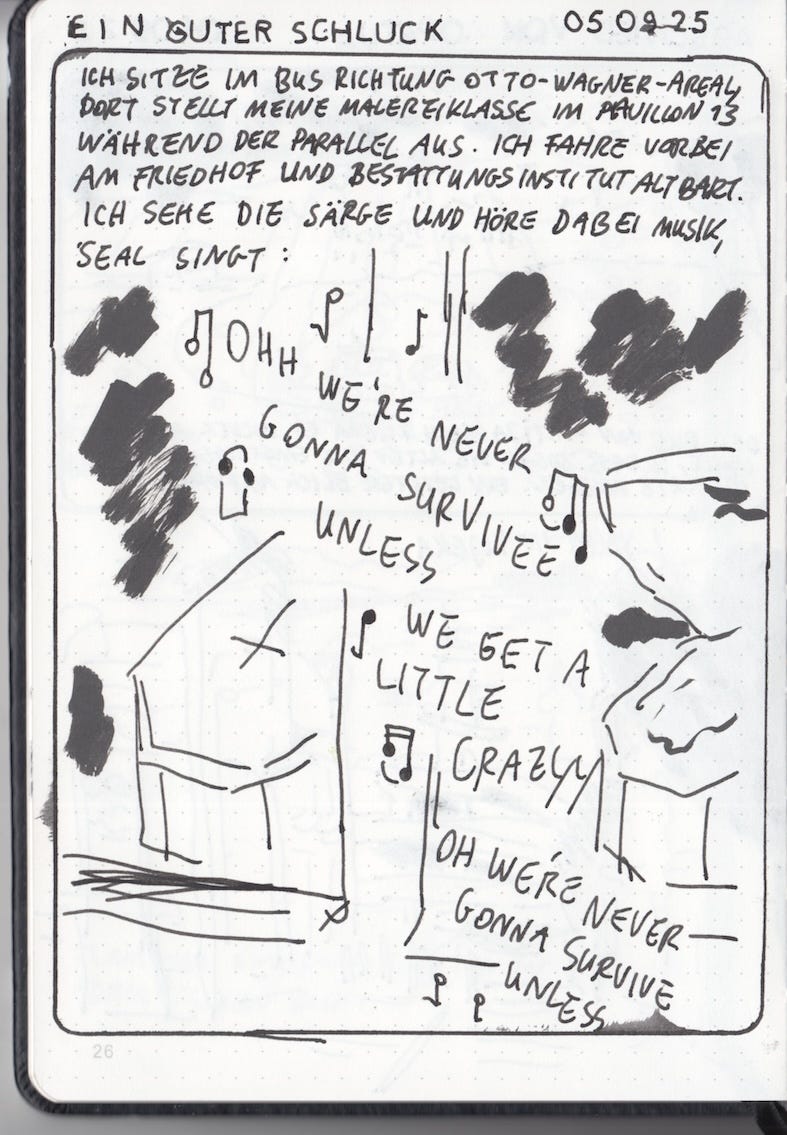 EIN GUTER SCHLUCK
05 09 25
ICH SITZE IM BUS RICHTUNG OTTO-WAGNER-AREAL,
DORT STELLT MEINE MALEREIKLASSE IM PAVILLON 13
WÄHREND DER PARALLEL AUS. ICH FAHRE VORBEI
AM FRIEDHOF UND BESTATTUNGSINSTITUT ALTBART.
ICH SEHE DIE SÄRGE UND HÖRE DABEI MUSIK,
SEAL SINGT:
OHH
WE'RE NEVER
GONNA SURVIVEE
UNLESS
WE GET A
LITTLE
CRAZYY
OH WE'RE NEVER
GONNA SURVIVE
UNLESS
26